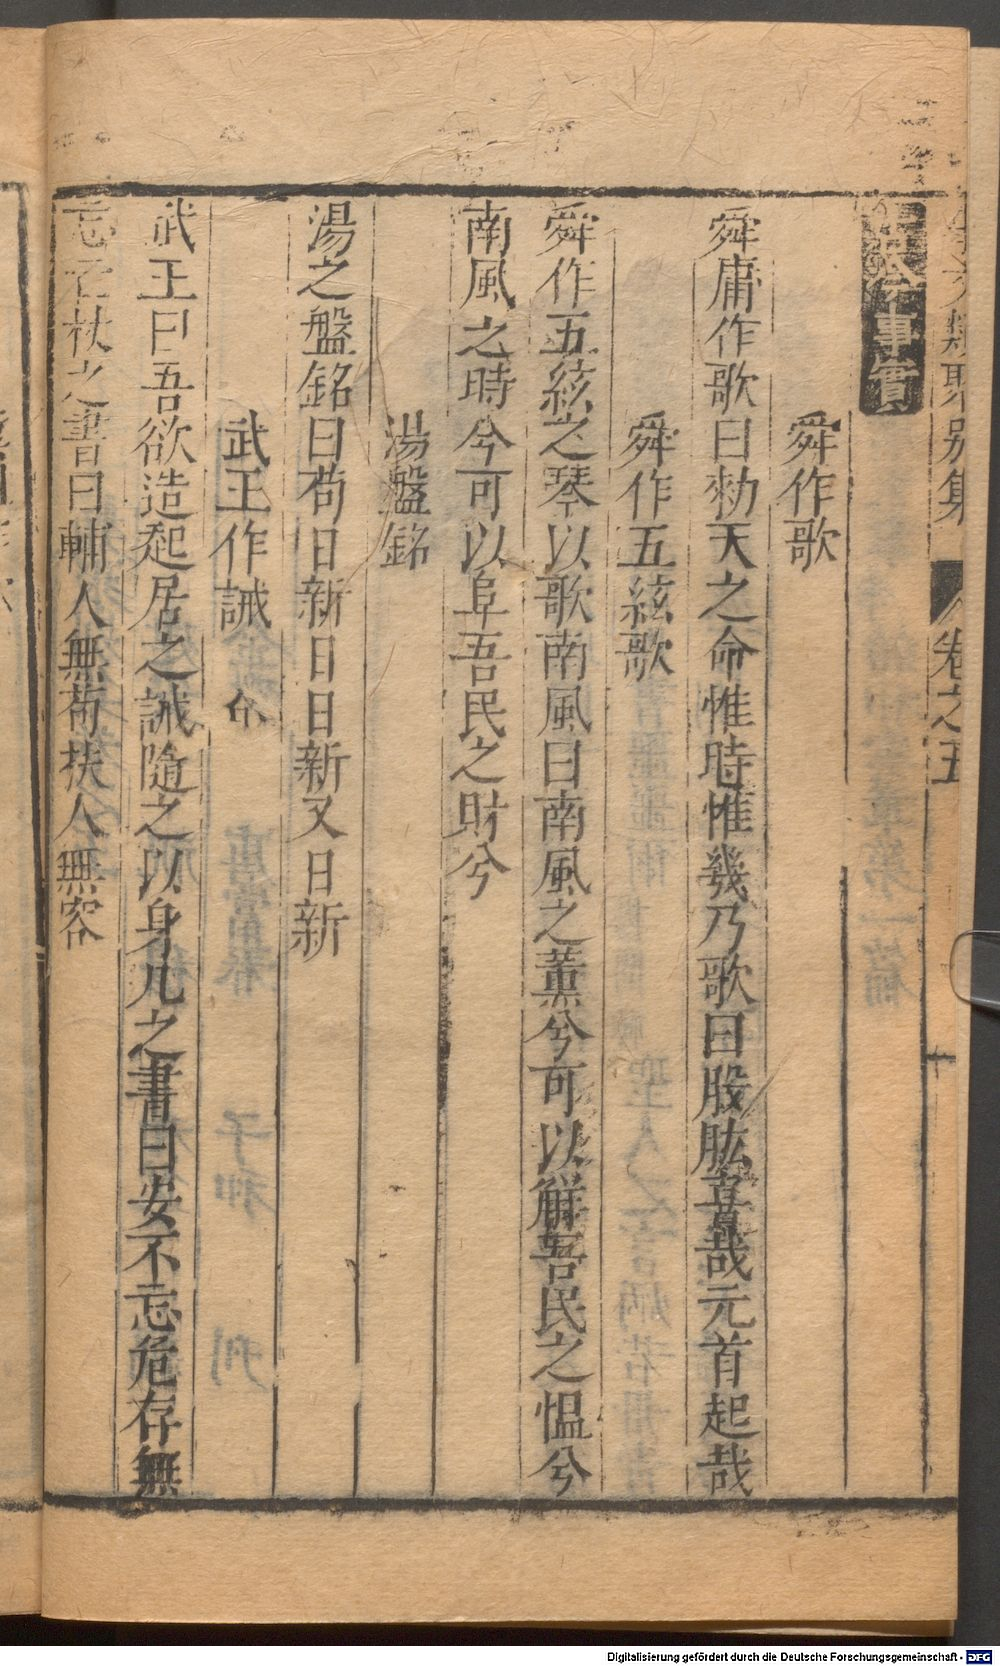 事文類聚別集 卷之五 十
古今事實
舜作歌
舜庸作歌曰勑天之命惟時惟幾乃歌曰股肱喜哉元首起哉
舜作五絃歌
舜作五絃之琴以歌南風曰南風之薰兮可以觧吾民之慍兮
南風之時兮可以阜吾民之財兮
湯盤銘
湯之盤銘曰苟日新日日新又日新
武王作誡
武王曰吾欲造起居之誡隨之以身几之書曰安不忘危存無
忘亡杖之書曰輔人無苟扶人無容
Digitalisierung gefördert durch die Deutsche Forschungsgemeinschaft - DFG